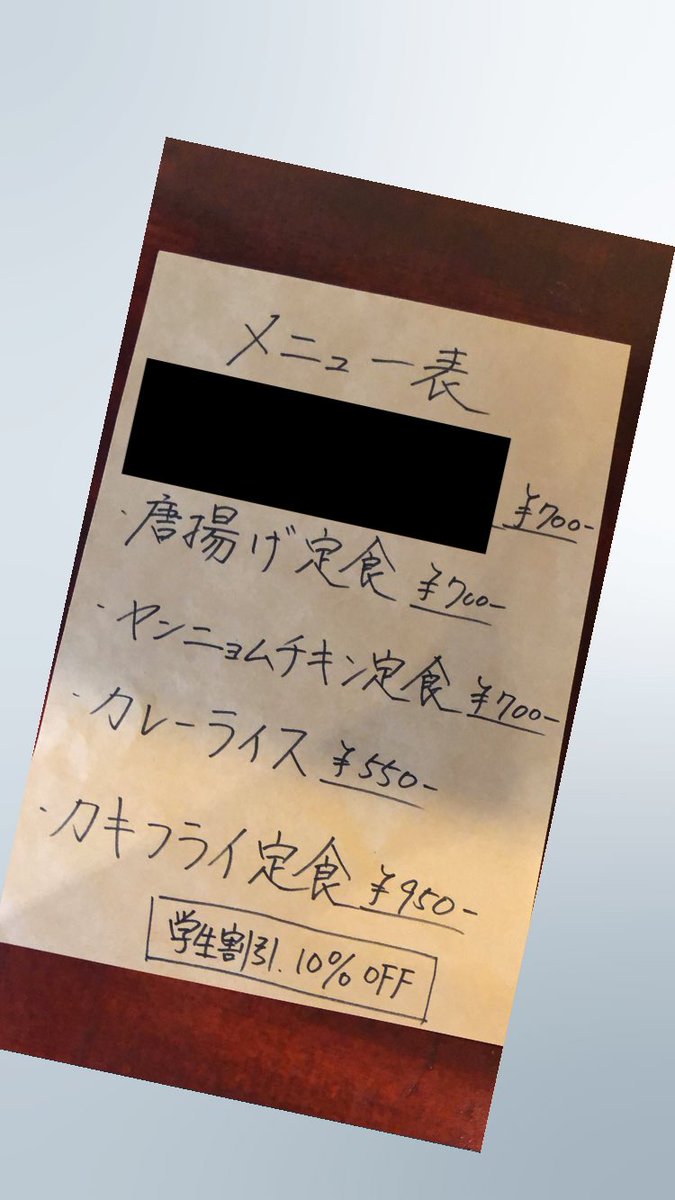 メニュー表
¥700-
・唐揚げ定食 ¥700-
・ヤンニョムチキン定食 ¥700-
・カレーライス ¥550-
・カキフライ定食 ¥950-
学生割引.10% OFF